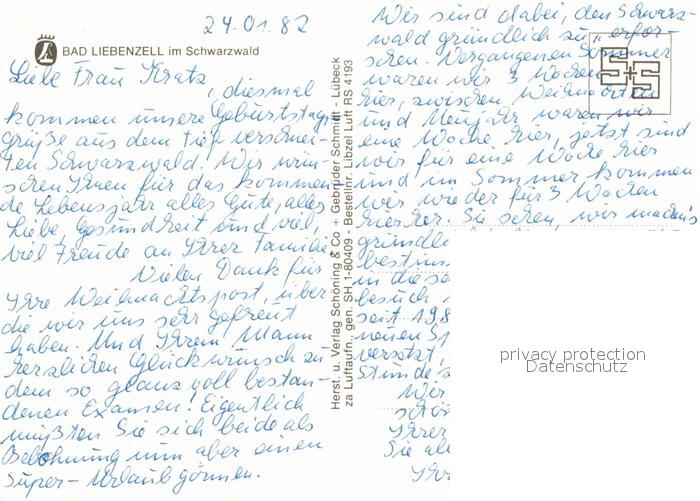 24.01.82
BAD LIEBENZELL im Schwarzwald
Liebe Frau Kratz, diesmal
kommen unsere Geburtstags-
grüße aus dem tief verschnei-
ten Schwarzwald. Wir wün-
schen Ihnen für das kommen-
de Lebensjahr alles Gute, alles
Liebe, Gesundheit und viel,
viel Freude an Ihrer Familie
Vielen Dank für
Ihre Weihnachtspost, über
die wir uns sehr gefreut
haben. Und Ihrem Mann
herzlichen Glückwunsch zu
dem so glanzvoll bestan-
denen Examen! Eigentlich
müßten Sie sich beide als
Belohnung nun aber einen
Super-Urlaub gönnen.
Herst. u. Verlag Schöning & Co + Gebrüder Schmidt - Lübeck
za Luftaufn. gen. SH 1-80409 - Bestellnr. Libzel Luft RS 4193
Wir sind dabei, den Schwarz-
wald gründlich zu "erfor-
schen. Vergangenen Sommer
waren wir 3 Wochen
hier, zwischen Weihnachten
und Neujahr waren wir
eine Woche hier, jetzt sind
wir für eine Woche hier
und im Sommer kommen
wir wieder für 3 Wochen
hierher. Sie sehen, wir machen's
gründli
bestim
in die se
besuch
seit 198
neuen Sp
versetzt,
Stunde s
Wir
schö
Ihrer
Sie al
Ihr
privacy protection
Datenschutz